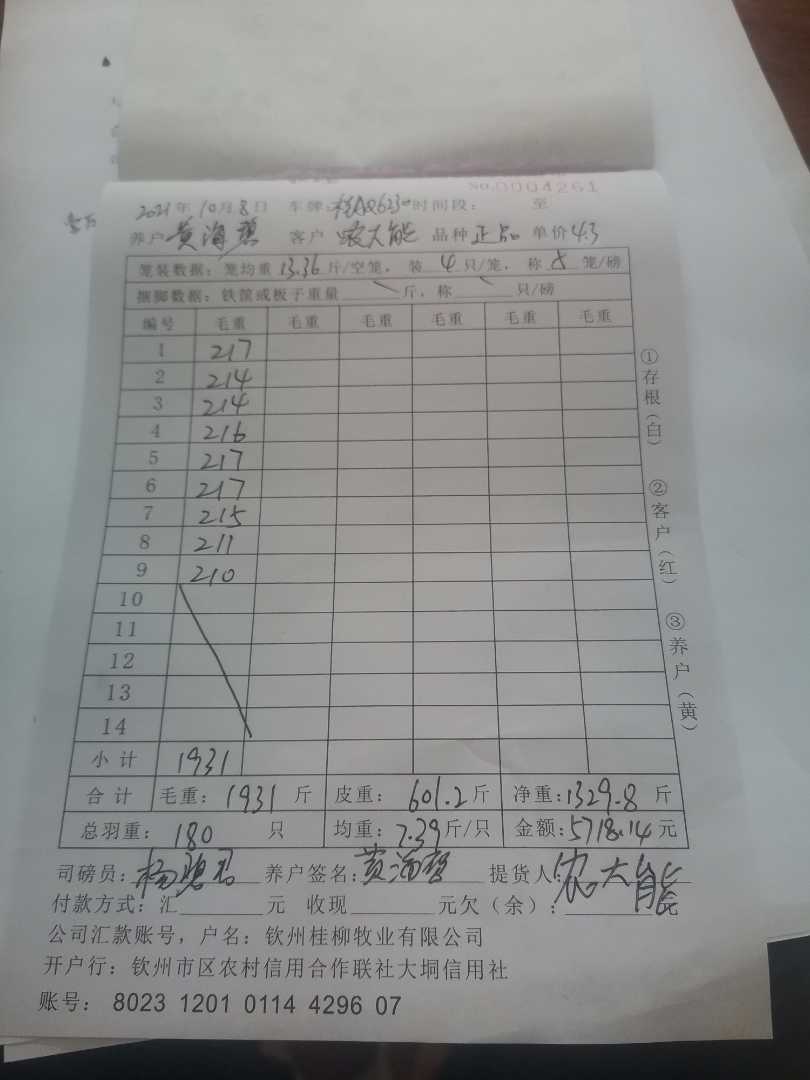 No.0004261
2021年10月8日 车牌:桂AQ6230时间段: 至
养户黄海碧 客户 农大能 品种 正品 单价 4.3
笼装数据:笼均重 13.36 斤/空笼,装 4 只/笼,称 5 笼/磅
捆脚数据:铁筐或板子重量 斤,称 只/磅
编号 毛重 毛重 毛重 毛重 毛重 毛重
1 217
2 214
3 214
4 216
5 217
6 217
7 215
8 211
9 210
10
11
12
13
14
小计 1931
合计 毛重:1931 斤 皮重:601.2斤 净重:1329.8 斤
总羽重:180 只 均重:7.39斤/只 金额:5718.14元
司磅员: 养户签名:黄海碧 提货人:农大能
付款方式:汇 元 收现 元欠(余):
公司汇款账号,户名:钦州桂柳牧业有限公司
开户行:钦州市区农村信用合作联社大垌信用社
账号:8023 1201 0114 4296 07
①存根(白)
②客户(红)
③养户(黄)